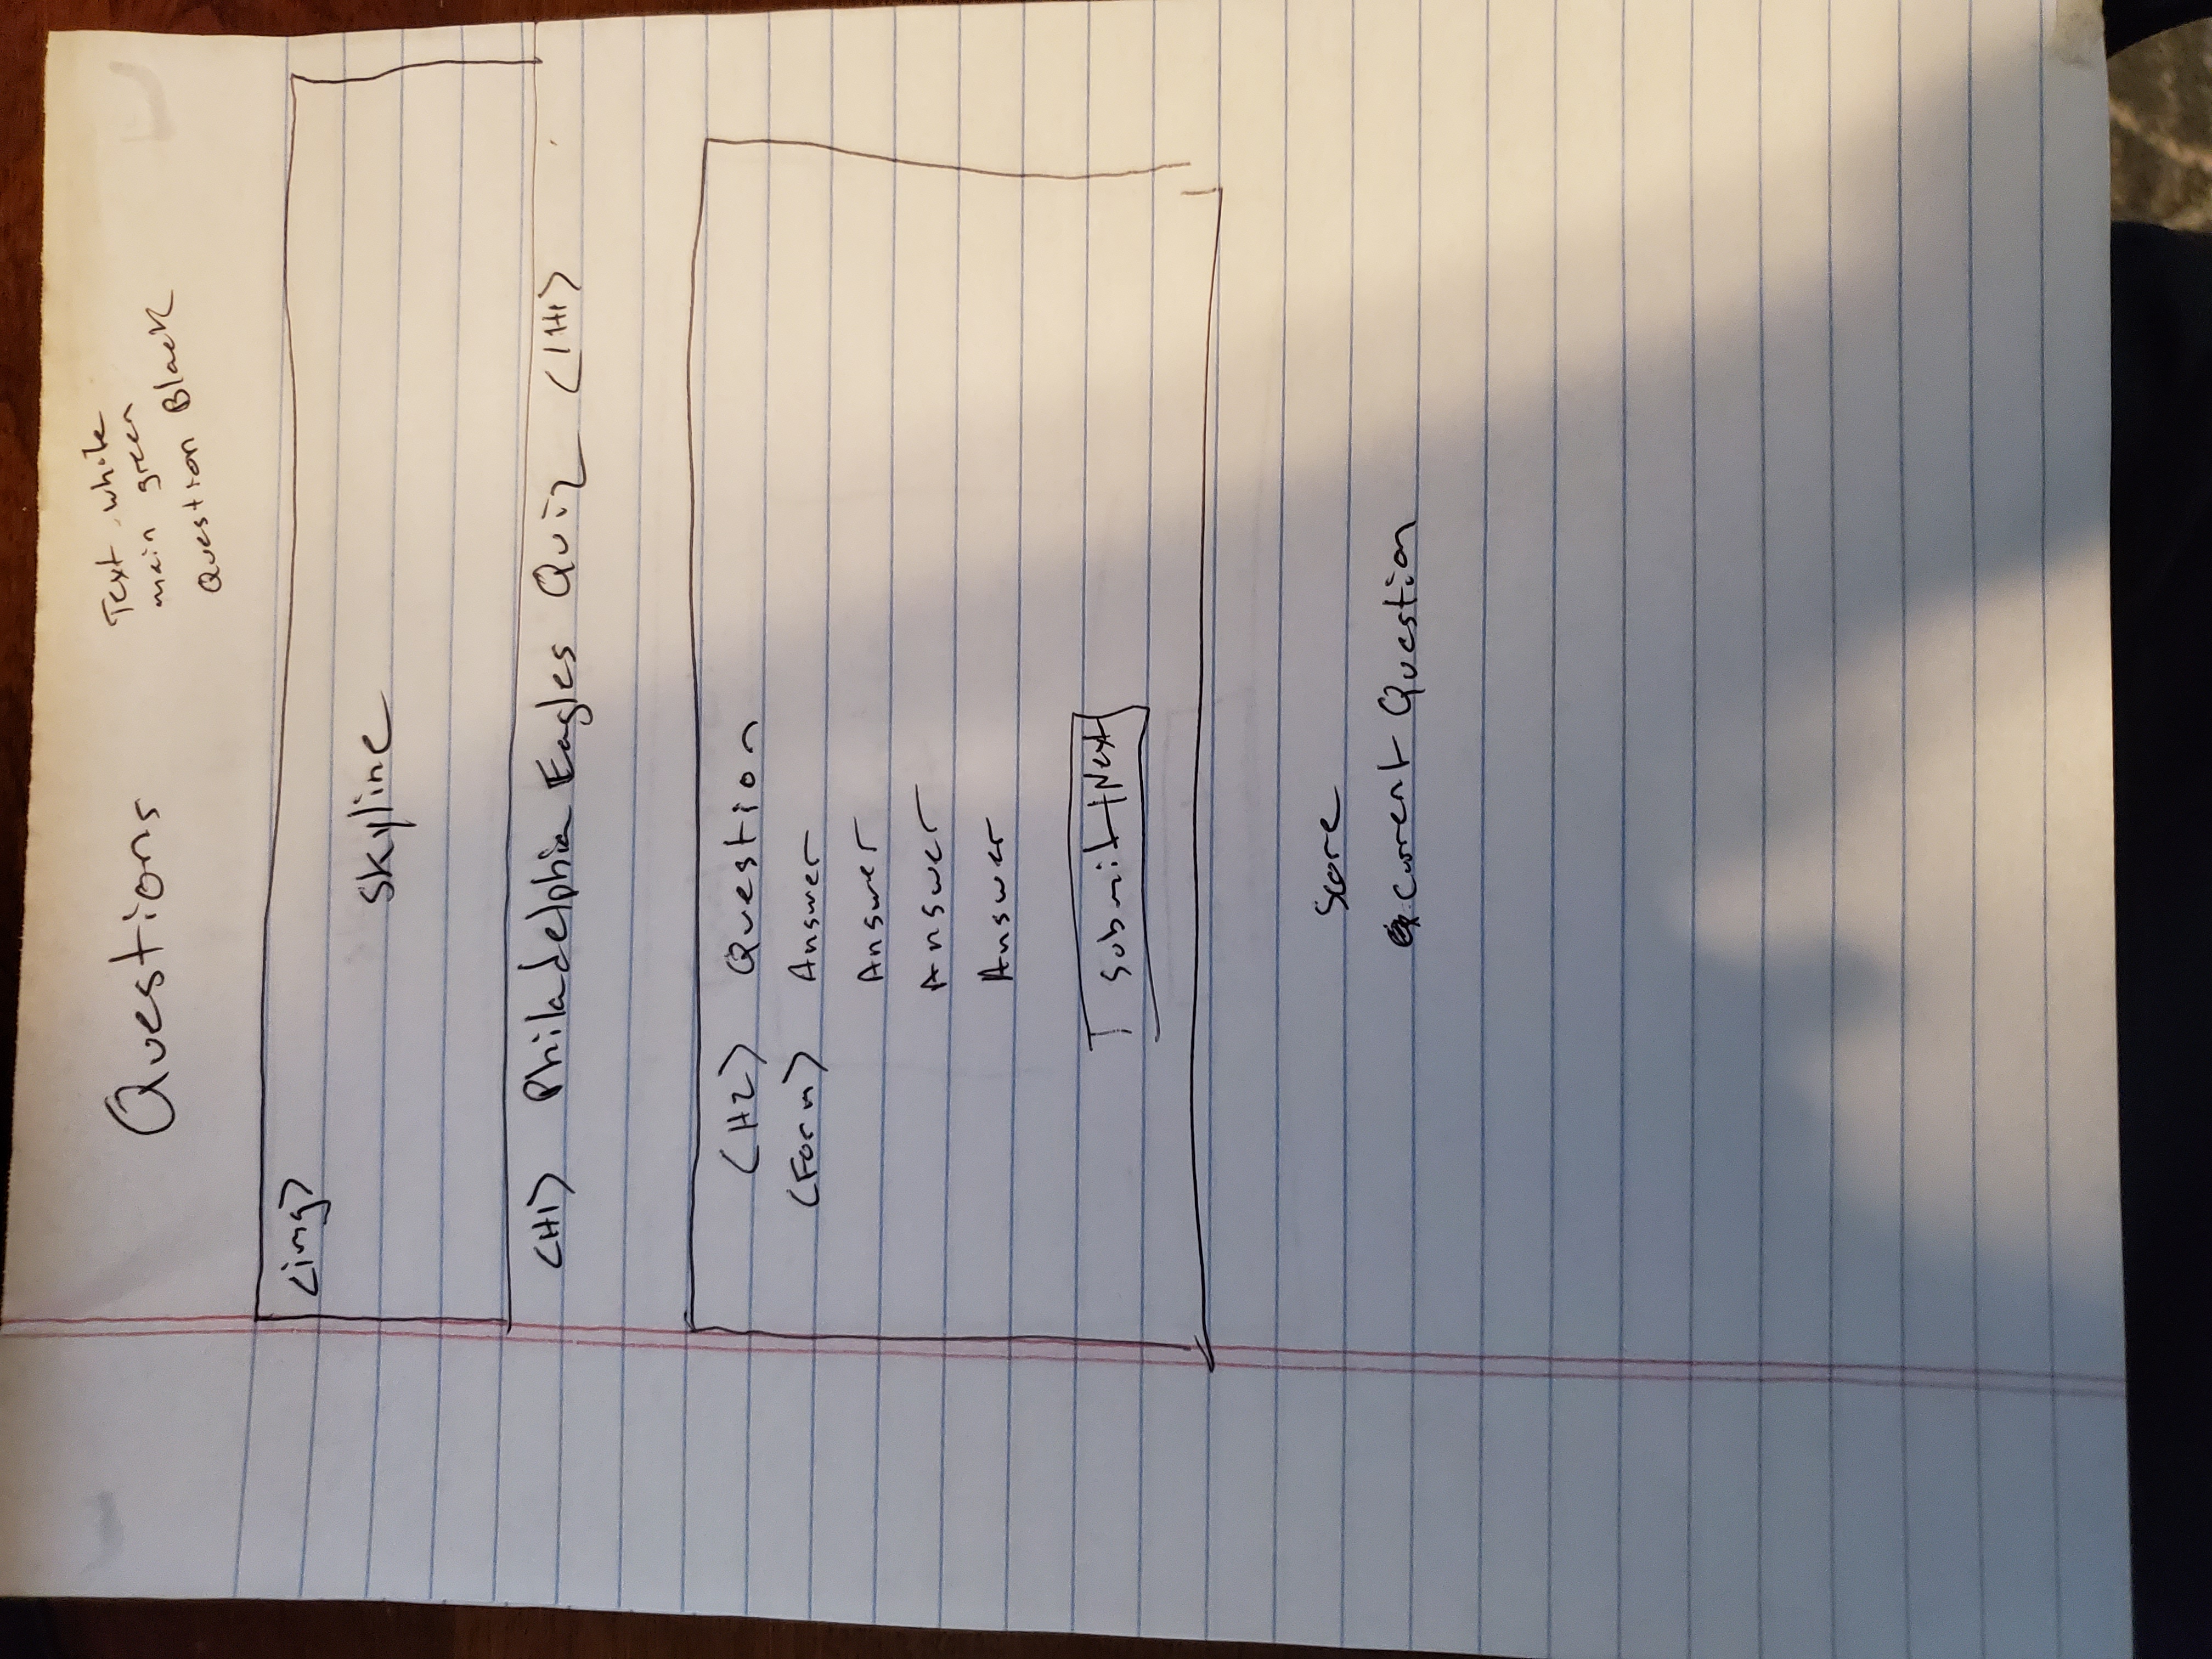 Questions
Text white
main green
Question Black
<img>
Skyline
<H1> Philadelphia Eagles Quiz </H1>
<H2> Question
<Form> Answer
Answer
Answer
Answer
Submit/Next
Score
current Question